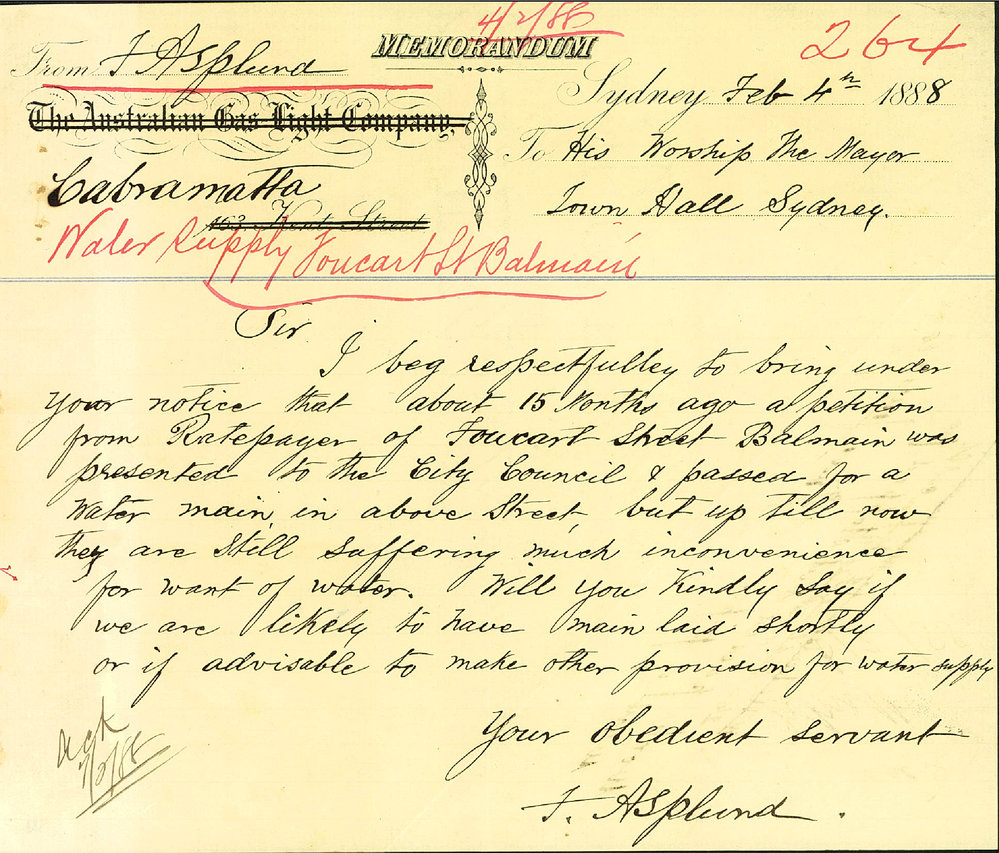 4/2/88
264
MEMORANDUM
From F Asplund
Sydney Feb 4th 1888
The Australian Gas Light Company,
To His Worship The Mayor
Cabramatta
163, Kent Street
Town Hall Sydney.
Water Supply Foucart St Balmain
Sir
I beg respectfulley to bring under
your notice that about 15 Months ago a petition
from Ratepayer of Foucart Street Balmain was
presented to the City Council & passed for a
Water main, in above Street, but up till now
they are Still suffering much inconvenience
for want of water. Will you Kindly Say if
we are likely to have main laid shortly
or if advisable to make other provision for water supply
Your obedient servant
F. Asplund.
ack
7/2/88